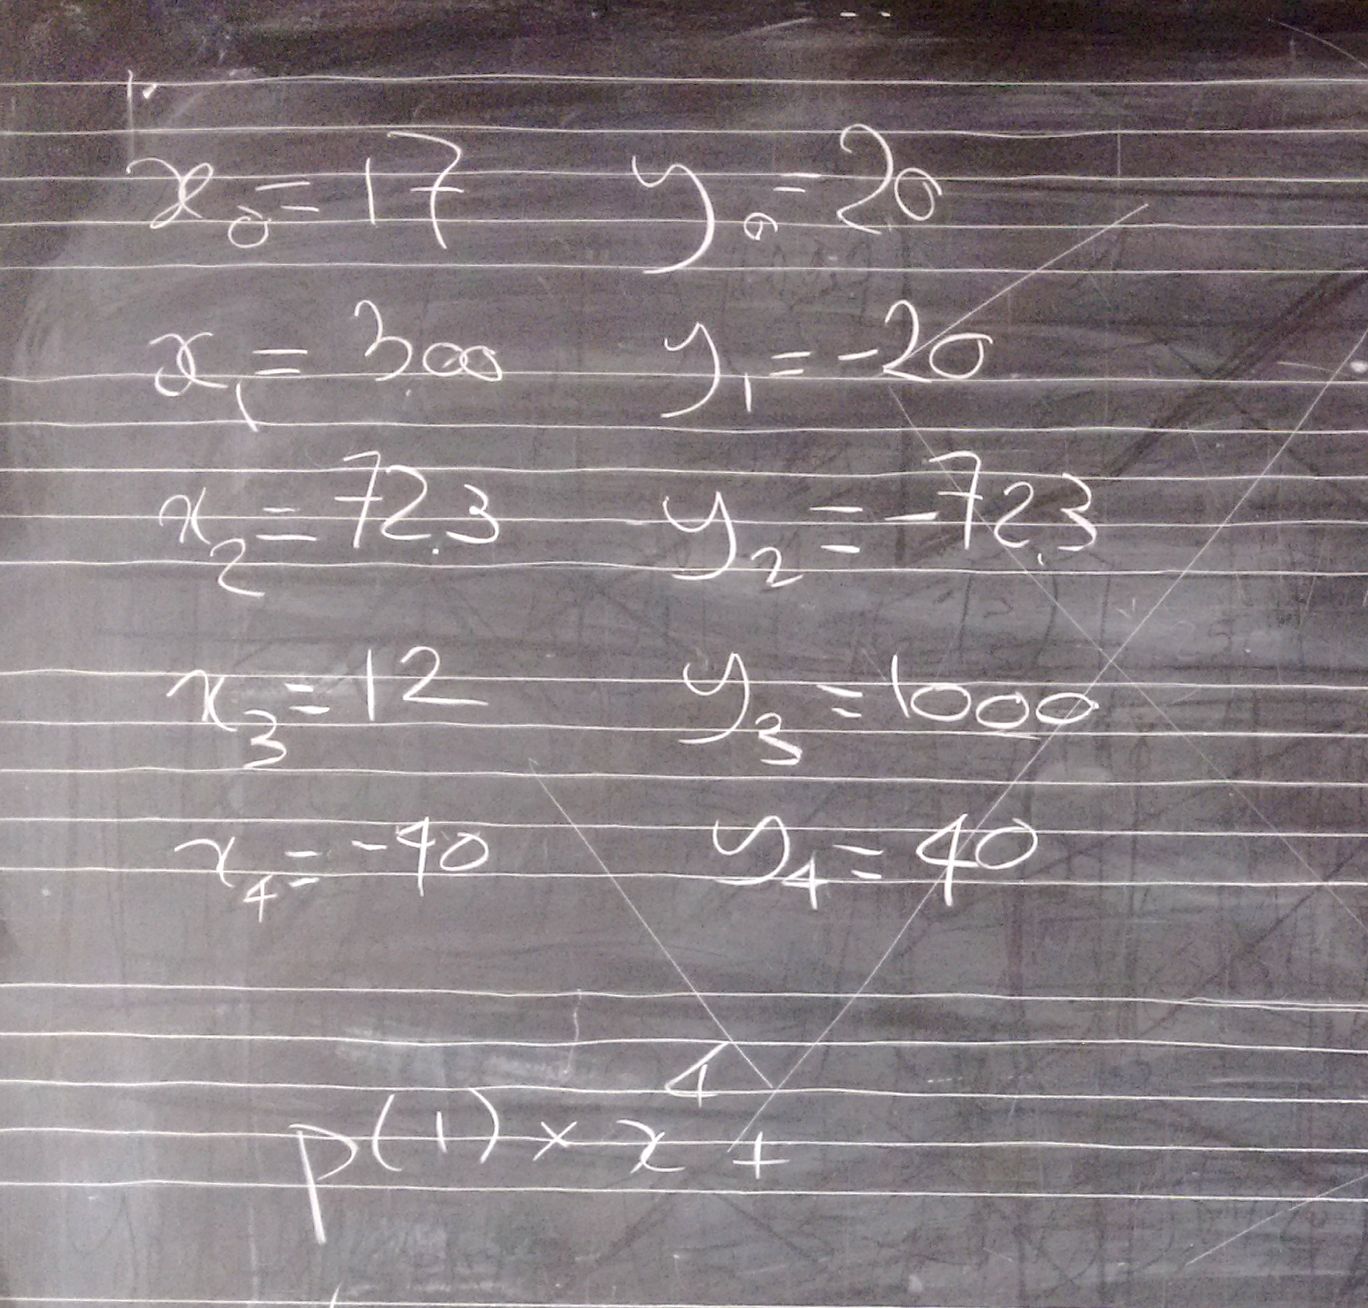 x₀ = 17 y₀ = 20
x₁ = 300 y₁ = -20
x₂ = 72.3 y₂ = -72.3
x₃ = 12 y₃ = 1000
x₄ = -40 y₄ = 40
p(1) × x⁴ +